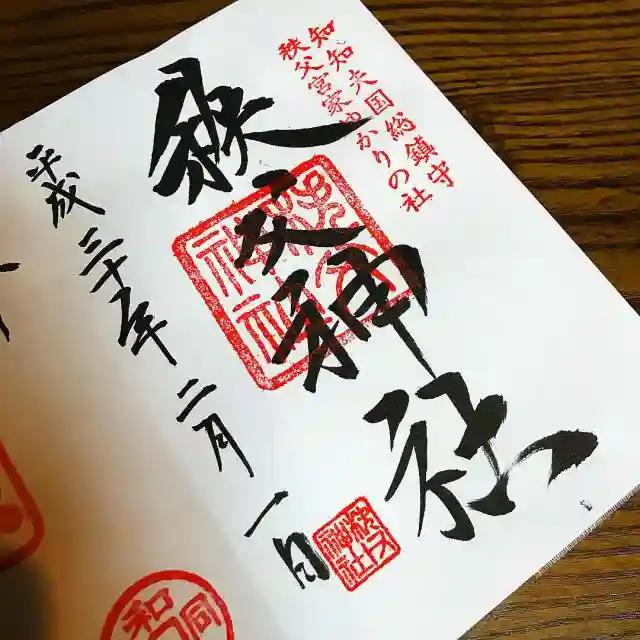 知知夫国総鎮守
秩父宮家ゆかりの社
秩父神社
平成三十年二月一日
秩父神社
秩父神社
和同